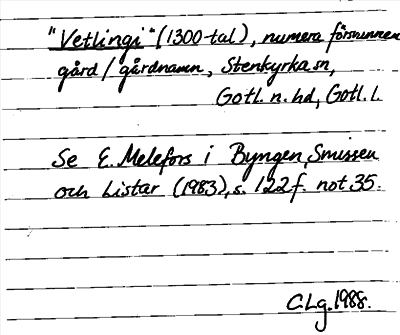 "Vetlingi" (1300-tal), numera försvunnen
gård / gårdnamn, Stenkyrka sn,
Gotl. n. hd, Gotl. l.
Se E. Melefors i Byngen, Smissen
och Listar (1983), s. 122 f. not 35.
C. Lg. 1988.